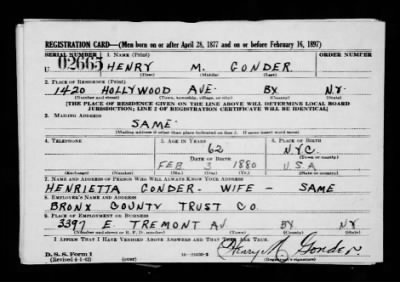 REGISTRATION CARD—(Men born on or after April 28, 1877 and on or before February 16, 1897)
SERIAL NUMBER 1. NAME (Print) ORDER NUMBER
U 02665 HENRY M. GONDER
(First) (Middle) (Last)
2. PLACE OF RESIDENCE (Print)
1420 HOLLYWOOD AVE. BX N.Y.
(Number and street) (Town, township, village, or city) (County) (State)
[THE PLACE OF RESIDENCE GIVEN ON THE LINE ABOVE WILL DETERMINE LOCAL BOARD
JURISDICTION; LINE 2 OF REGISTRATION CERTIFICATE WILL BE IDENTICAL]
3. MAILING ADDRESS
SAME
(Mailing address if other than place indicated on line 2. If same insert word same)
4. TELEPHONE 5. AGE IN YEARS 6. PLACE OF BIRTH
62 N.Y.C.
DATE OF BIRTH (Town or county)
FEB 1880 U.S.A
(Mo.) (Day) (Yr.) (State or country)
7. NAME AND ADDRESS OF PERSON WHO WILL ALWAYS KNOW YOUR ADDRESS
HENRIETTA GONDER - WIFE - SAME
8. EMPLOYER'S NAME AND ADDRESS
BRONX COUNTY TRUST CO.
9. PLACE OF EMPLOYMENT OR BUSINESS
3397 E. TREMONT AV BX NY
(Number and street or R. F. D. number) (Town) (County) (State)
I AFFIRM THAT I HAVE VERIFIED ABOVE ANSWERS AND THAT THEY ARE TRUE.
D. S. S. Form 1 Henry M Gonder
(Revised 4-1-42) (Registrant's signature)